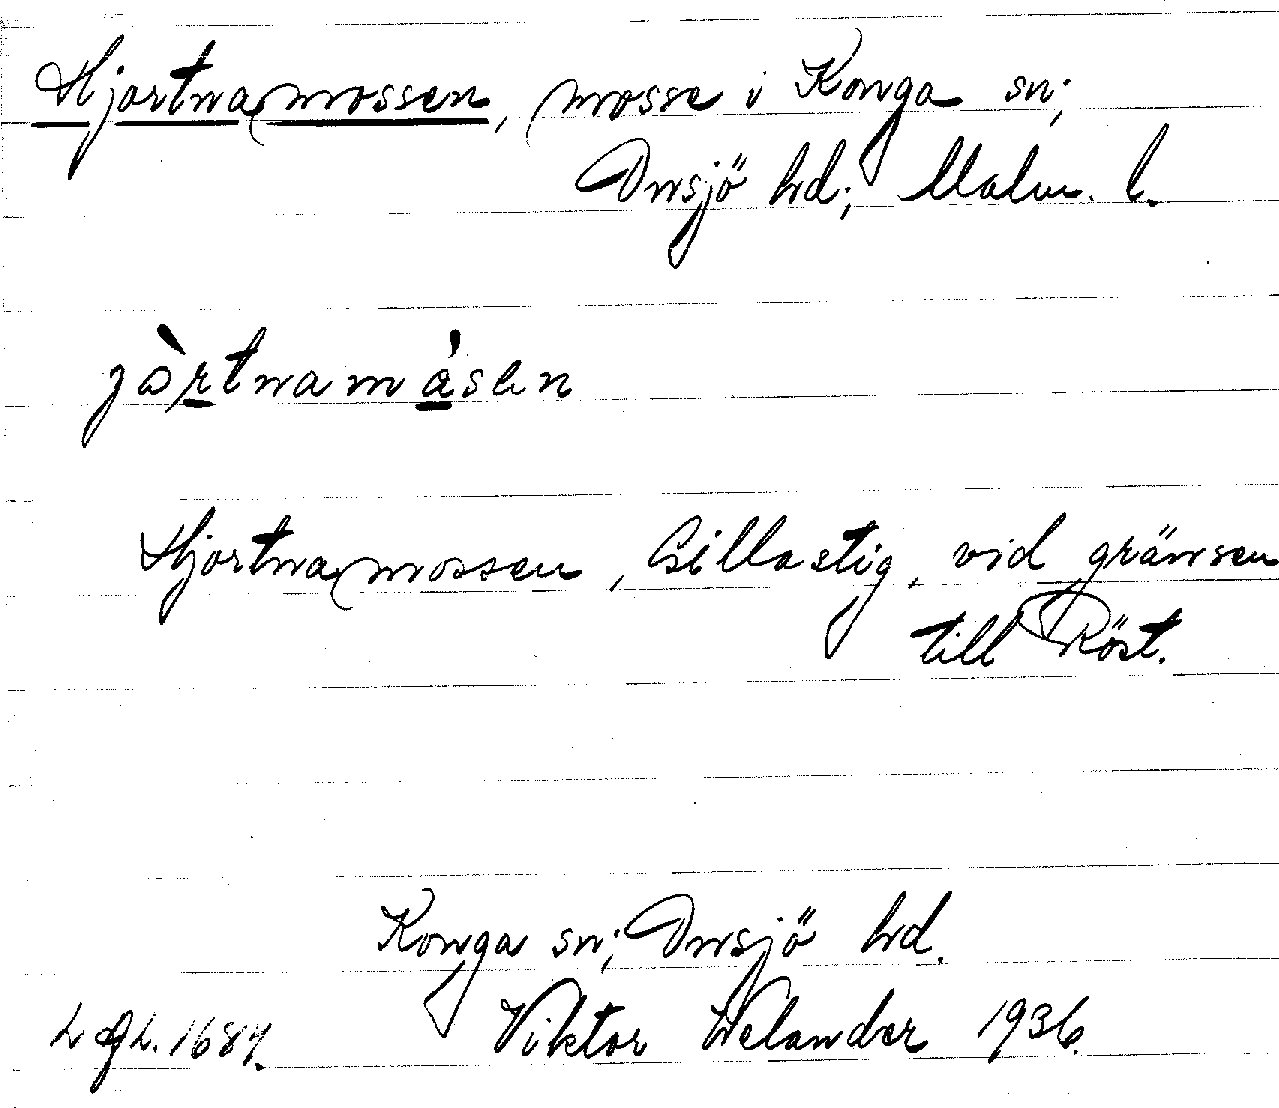 Hjortnamossen, mosse i Konga sn;
Onsjö hd; Malm. l.
jòrtnamåsen
Hjortnamossen, Gillastig, vid gränsen
till Röst.
Konga sn; Onsjö hd.
Viktor Welander 1936.